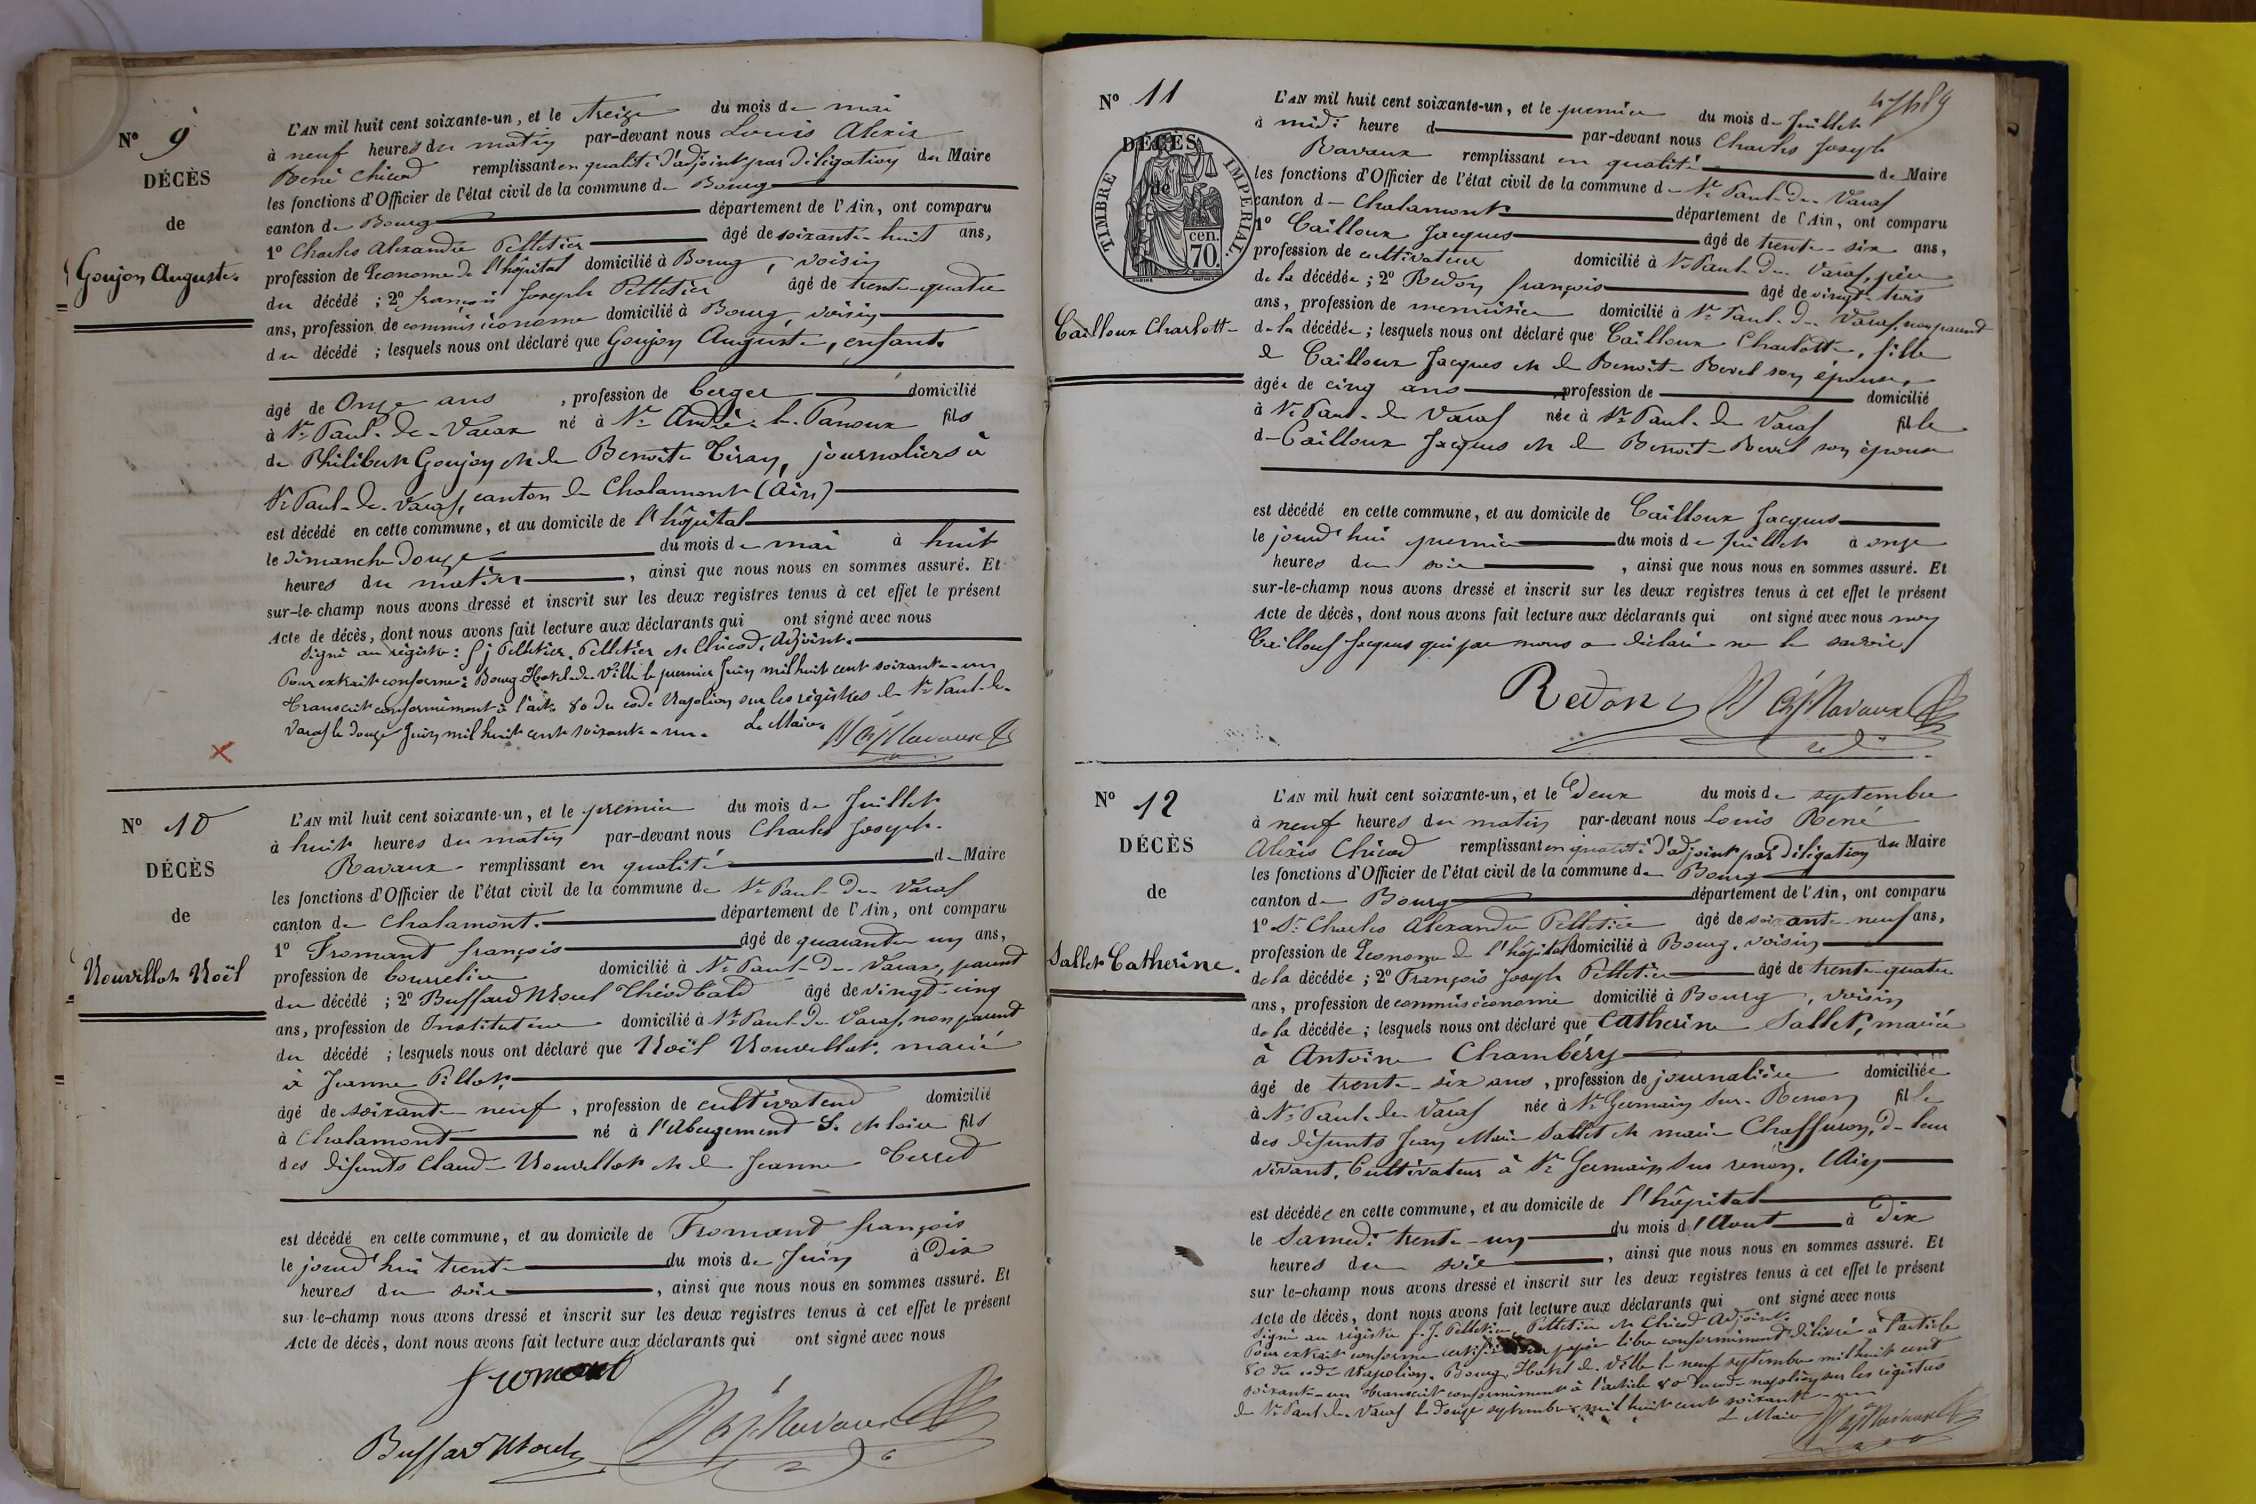 N° 9
DÉCÈS
de
Goujon Auguste
L'AN mil huit cent soixante-un, et le treize du mois de mai
à neuf heures du matin par-devant nous Louis Alexis
René Chicod remplissant en qualité d'adjoint par délégation du Maire
les fonctions d'Officier de l'état civil de la commune de Bourg
canton de Bourg département de l'Ain, ont comparu
1° Charles Alexandre Pelletier âgé de soixante-huit ans,
profession de Econome de l'hôpital domicilié à Bourg, voisin
du décédé ; 2° françois Joseph Pelletier âgé de trente-quatre
ans, profession de commis économe domicilié à Bourg, voisin
du décédé ; lesquels nous ont déclaré que Goujon Auguste, enfant
âgé de Onze ans, profession de berger domicilié
à St Paul-de-Varax né à St André-le-Panoux fils
de Philibert Goujon et de Benoite Tiran, journaliers à
St Paul-de-Varax, canton de Chalamont (Ain)
est décédé en cette commune, et au domicile de l'hôpital
le dimanche douze du mois de mai à huit
heures du matin, ainsi que nous nous en sommes assuré. Et
sur-le-champ nous avons dressé et inscrit sur les deux registres tenus à cet effet le présent
Acte de décès, dont nous avons fait lecture aux déclarants qui ont signé avec nous
Signé au registre : f j Pelletier, Pelletier et Chicod, Adjoint.
Pour extrait conforme : Bourg Hotel-de-Ville le premier Juin mil huit cent soixante-un
Transcrit conformément à l'art. 80 du code Napoléon sur les registres de St Paul-de-
Varax le douze Juin mil huit cent soixante-un. Le Maire
N° 10
DÉCÈS
de
Nouvillot Noël
L'AN mil huit cent soixante-un, et le premier du mois de Juillet
à huit heures du matin par-devant nous Charles Joseph
Ravaux remplissant en qualité de Maire
les fonctions d'Officier de l'état civil de la commune de St Paul-de-Varax
canton de Chalamont. département de l'Ain, ont comparu
1° Fromant françois âgé de quarante un ans,
profession de bourrelier domicilié à St Paul-de-Varax, parent
du décédé ; 2° Buffard Morel Théodbald âgé de vingt-cinq
ans, profession de Instituteur domicilié à St Paul-de-Varax, non parent
du décédé ; lesquels nous ont déclaré que Noël Nouvillot, marié
à Jeanne Pillot
âgé de soixante neuf, profession de cultivateur domicilié
à Chalamont né à l'Abergement St. Claire fils
des défunts Claude Nouvillot et de Jeanne Terret
est décédé en cette commune, et au domicile de Fromant françois
le jourd'hui trente du mois de Juin à Dix
heures du soir, ainsi que nous nous en sommes assuré. Et
sur-le-champ nous avons dressé et inscrit sur les deux registres tenus à cet effet le présent
Acte de décès, dont nous avons fait lecture aux déclarants qui ont signé avec nous
fromant
Buffard Morel
N° 11
DÉCÈS
de
TIMBRE IMPÉRIAL
70 cen.
Cailloux Charlotte
L'AN mil huit cent soixante-un, et le premier du mois de Juillet
à midi heure d par-devant nous Charles Joseph
Ravaux remplissant en qualité de Maire
les fonctions d'Officier de l'état civil de la commune de St Paul-de-Varax
canton de Chalamont département de l'Ain, ont comparu
1° Cailloux Jacques âgé de trente-six ans,
profession de cultivateur domicilié à St Paul-de-Varax, père
de la décédée ; 2° Redon françois âgé de vingt-trois
ans, profession de menuisier domicilié à St Paul-de-Varax, non parent
de la décédée ; lesquels nous ont déclaré que Cailloux Charlotte, fille
de Cailloux Jacques et de Benoite Revel son épouse,
âgée de cinq ans profession de domicilié
à St Paul-de-Varax née à St Paul-de-Varax fille
de Cailloux Jacques et de Benoite Revel son épouse
est décédé en cette commune, et au domicile de Cailloux Jacques
le jourd'hui premier du mois de Juillet à onze
heures du soir, ainsi que nous nous en sommes assuré. Et
sur-le-champ nous avons dressé et inscrit sur les deux registres tenus à cet effet le présent
Acte de décès, dont nous avons fait lecture aux déclarants qui ont signé avec nous non
Cailloux Jacques qui par nous a déclaré ne le savoir
Redon
N° 12
DÉCÈS
de
Sallet Catherine
L'AN mil huit cent soixante-un, et le Deux du mois de septembre
à neuf heures du matin par-devant nous Louis René
Alexis Chicod remplissant en qualité d'adjoint par délégation du Maire
les fonctions d'Officier de l'état civil de la commune de Bourg
canton de Bourg département de l'Ain, ont comparu
1° Sr Charles Alexandre Pelletier âgé de soixante-neuf ans,
profession de Econome de l'hôpital domicilié à Bourg, voisin
de la décédée ; 2° François Joseph Pelletier âgé de trente-quatre
ans, profession de commis économe domicilié à Bourg, voisin
de la décédée ; lesquels nous ont déclaré que Catherine Sallet, mariée
à Antoine Chambéry
âgé de trente-six ans, profession de journalière domiciliée
à St Paul-de-Varax née à St Germain sur-Renon fille
des défunts Jean Marie Sallet et marie Chaffuron, de leur
vivant, Cultivateurs à St Germain sur renon, (Ain)
est décédée en cette commune, et au domicile de l'hôpital
le Samedi trente-un du mois d'Aout à Dix
heures du soir, ainsi que nous nous en sommes assuré. Et
sur-le-champ nous avons dressé et inscrit sur les deux registres tenus à cet effet le présent
Acte de décès, dont nous avons fait lecture aux déclarants qui ont signé avec nous
Signé au registre f. J. Pelletier, Pelletier et Chicod Adjoint.
Pour extrait conforme papier libre conformément délivré à l'article
80 du code Napoléon. Bourg, Hotel-de-Ville le neuf septembre mil huit cent
soixante-un Transcrit conformément à l'article 80 du code napoléon sur les registres
de St Paul-de-Varax le douze septembre mil huit cent soixante-un
Le Maire